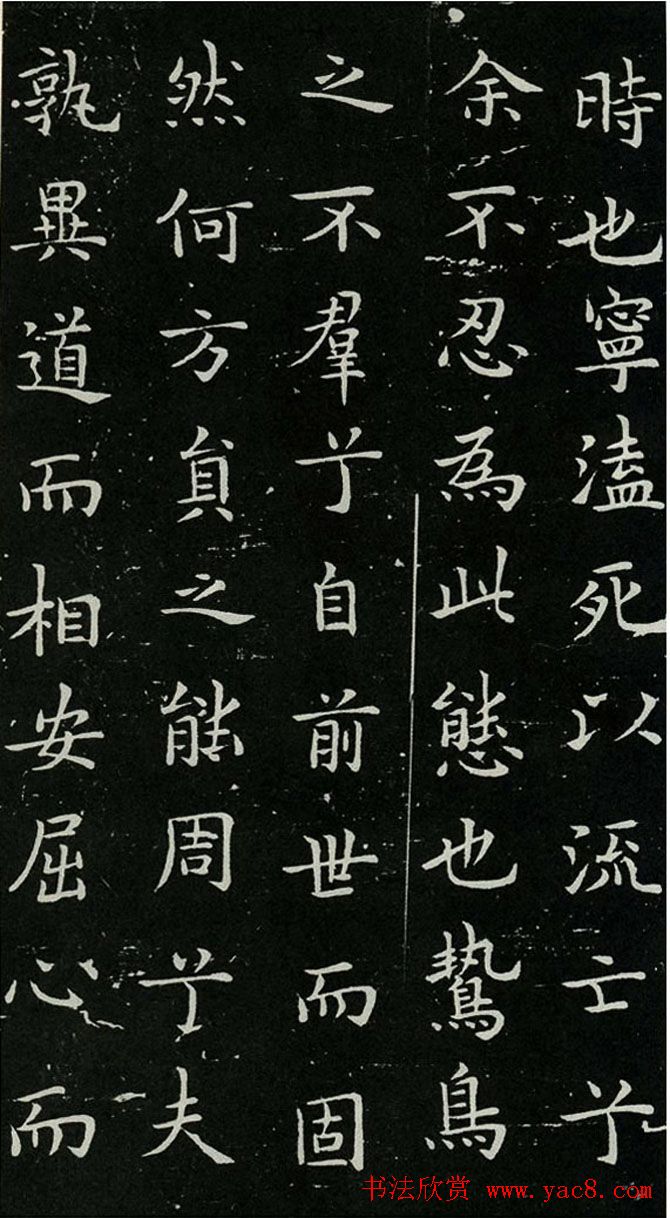 時也寧溘死以流亡兮
余不忍為此態也鷙鳥
之不羣兮自前世而固
然何方貟之能周兮夫
孰異道而相安屈心而
书法欣赏 www.yac8.com